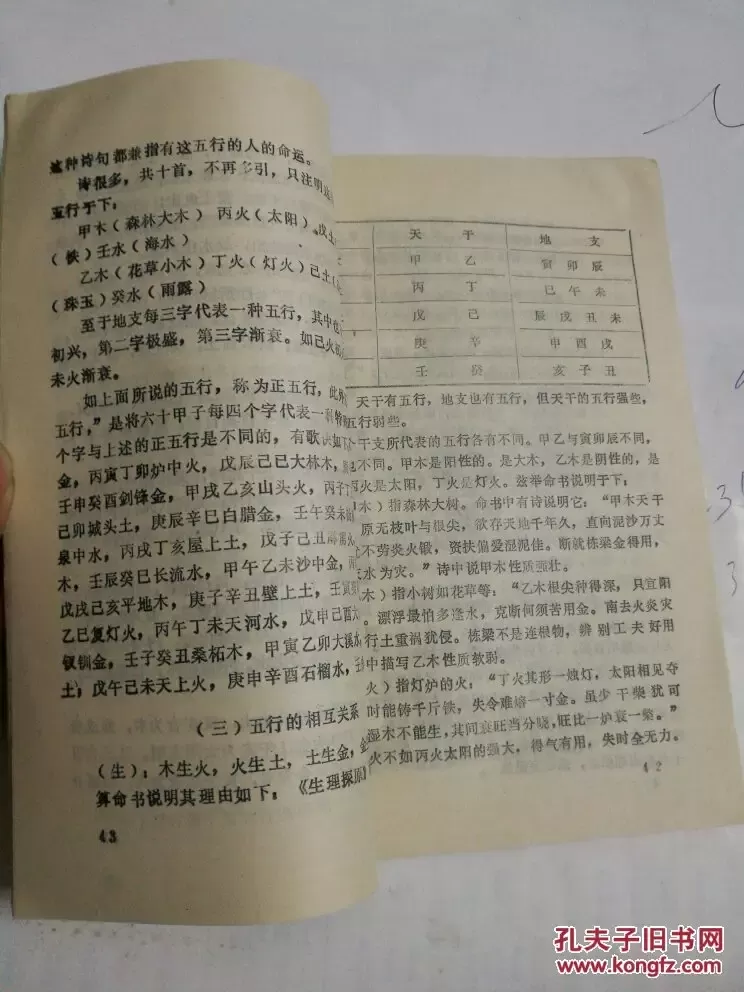 这种诗句都兼指有这五行的人的命运。
诗很多，共十首，不再多引，只注明
五行于下：
甲木（森林大木）丙火（太阳）戊土
（铁）壬水（海水）
乙木（花草小木）丁火（灯火）己土
（珠玉）癸水（雨露）
至于地支每三字代表一种五行，其中
初兴，第二字极盛，第三字渐衰。如巳火
未火渐衰。
如上面所说的五行，称为正五行，此外
五行，”是将六十甲子每四个字代表一种
个字与上述的正五行是不同的，有歌诀如下
金，丙寅丁卯炉中火，戊辰己巳大林木，
壬申癸酉剑锋金，甲戌乙亥山头火，丙子丁
己卯城头土，庚辰辛巳白腊金，壬午癸未
泉中水，丙戌丁亥屋上土，戊子己丑
木，壬辰癸巳长流水，甲午乙未沙中金，
戊戌己亥平地木，庚子辛丑壁上土，壬寅
乙巳复灯火，丙午丁未天河水，戊申己酉大
钗钏金，壬子癸丑桑柘木，甲寅乙卯大溪水
土；戊午己未天上火，庚申辛酉石榴水，
（三）五行的相互关系
（生）：木生火，火生土，土生金，金
算命书说明其理由如下：《生理探原》
43
天 干 地 支
甲 乙 寅 卯 辰
丙 丁 巳 午 未
戊 己 辰 戌 丑 未
庚 辛 申 酉 戌
壬 癸 亥 子 丑
天干有五行，地支也有五行，但天干的五行强些，
五行弱些。
干支所代表的五行各有不同。甲乙与寅卯辰不同，
不同。甲木是阳性的。是大木，乙木是阴性的，是
丙火是太阳，丁火是灯火。兹举命书说明于下；
木）指森林大树。命书中有诗说明它：“甲木天干
原无枝叶与根尖，欲存天地千年久，直向泥沙万丈
不劳炎火锻，资扶偏爱湿泥佳。断就栋梁金得用，
水为灾。”诗中说甲水性质强壮。
木）指小树如花草等：“乙木根尖种得深，只宜阳
。漂浮最怕多逢水，克断何须苦用金。南去火炎灾
行土重涡犹侵。栋梁不是连根物，辨别工夫好用
中描写乙木性质教弱。
火）指灯炉的火：“丁火其形一烛灯，太阳相见夺
时能铸千斤铁，失令难熔一寸金。虽少干柴犹可
湿木不能生，其间衰旺当分晓，旺比一炉衰一檠。”
火不如丙火太阳的强大，得气有用，失时全无力。
42
孔夫子旧书网
www.kongfz.com